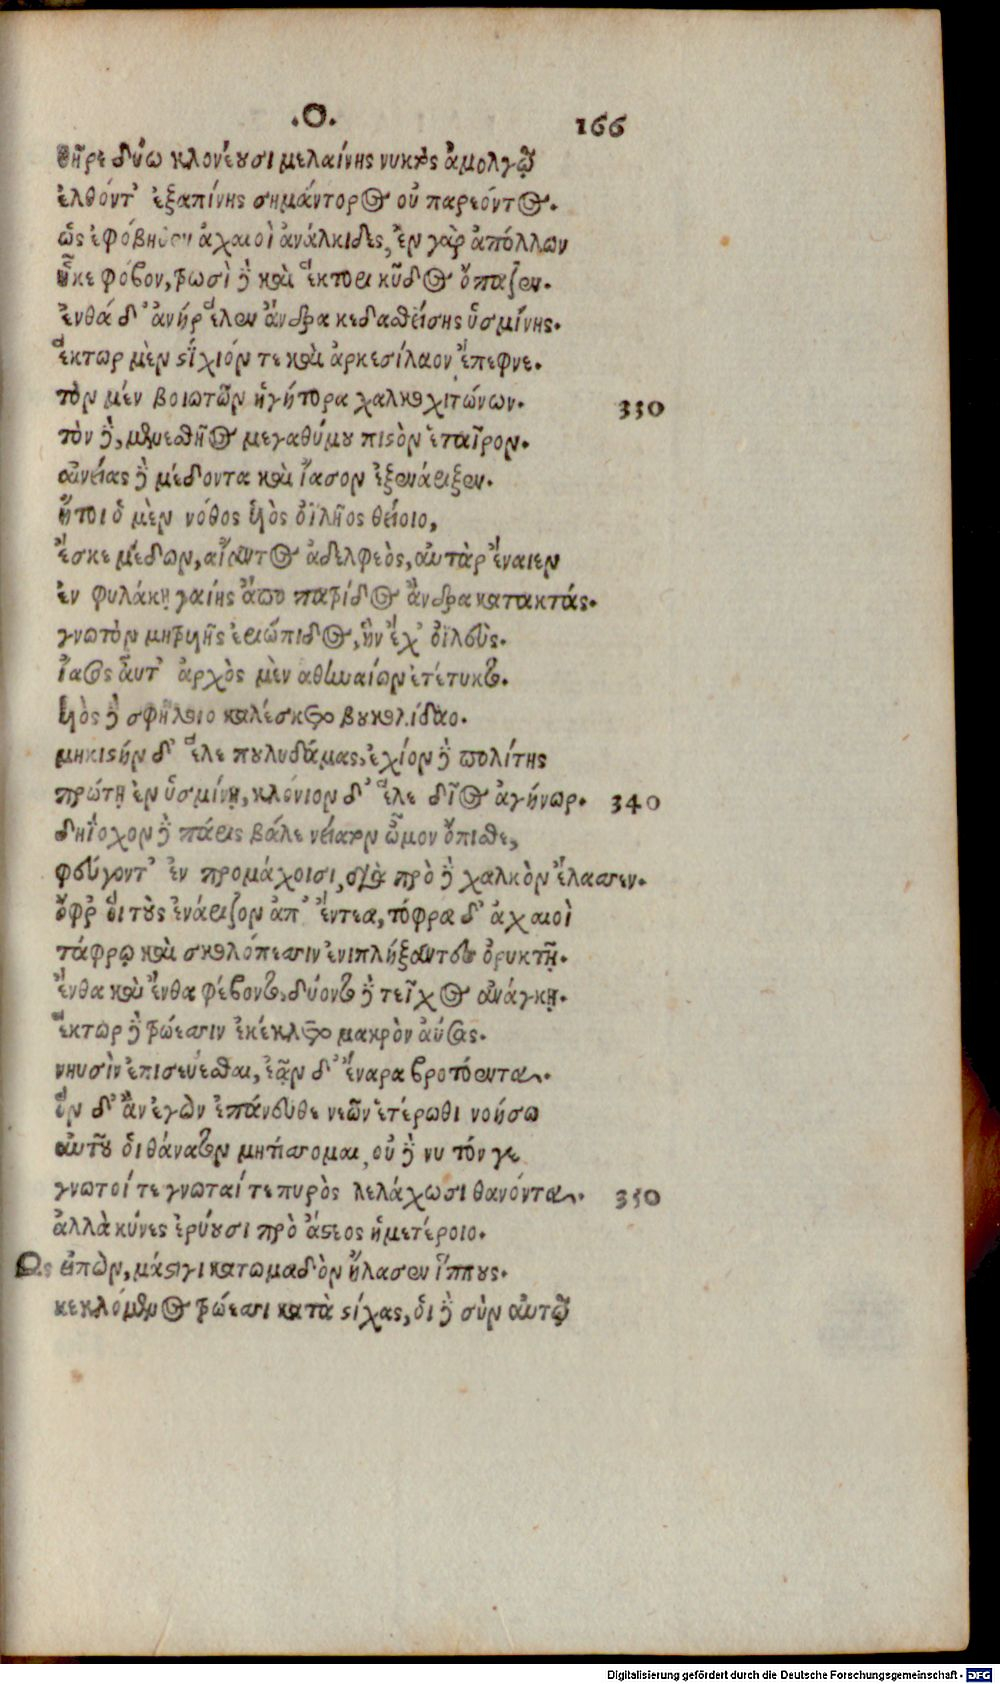 .Ο. 166
θῆρε δύω κλονέουσι μελαίνης νυκτὸς ἀμολγῷ
ἐλθόντ' ἐξαπίνης σημάντορος οὐ παρεόντος.
ὣς ἐφόβηθεν ἀχαιοὶ ἀνάλκιδες, ἐν γὰρ ἀπόλλων
ἧκε φόβον, τρωσὶ δὲ καὶ ἕκτορι κῦδος ὄπαζεν.
ἔνθά δ' ἀνὴρ ἕλεν ἄνδρα κεδασθείσης ὑσμίνης.
ἕκτωρ μὲν στίχιόν τε καὶ ἀρκεσίλαον ἔπεφνε.
τὸν μέν βοιωτῶν ἡγήτορα χαλκοχιτώνων. 330
τὸν δὲ, μενεσθῆος μεγαθύμου πιστὸν ἑταῖρον.
αἰνείας δὲ μέδοντα καὶ ἴασον ἐξενάριξεν.
ἤτοι ὁ μὲν νόθος ὑιὸς ὀϊλῆος θείοιο,
ἔσκε μέδων, αἴαντος ἀδελφεὸς, αὐτὰρ ἔναιεν
ἐν φυλάκῃ γαίης ἄπο πατρίδος ἄνδρα κατακτάς.
γνωτὸν μητρυιῆς ἐριώπιδος, ἣν ἔχ' ὀϊλεὺς.
ἴασος αὖτ' ἀρχὸς μὲν ἀθηναίων ἐτέτυκτο.
ὑιὸς δὲ σφήλοιο καλέσκετο βουκολίδαο.
μηκιστῆν δ' ἕλε πουλυδάμας, ἐχίον δὲ πολίτης
πρώτῃ ἐν ὑσμίνῃ, κλόνιον δ' ἕλε δῖος ἀγήνωρ. 340
δηΐοχον δὲ πάρις βάλε νείατον ὦμον ὄπισθε,
φεύγοντ' ἐν προμάχοισι, διὰ πρὸ δὲ χαλκὸν ἔλασσεν.
ὄφρ' ὅι τοὺς ἐνάριζον ἀπ' ἔντεα, τόφρα δ' ἀχαιοὶ
τάφρῳ καὶ σκολόπεσσιν ἐνιπλήξαντες ὀρυκτῇ.
ἔνθα καὶ ἔνθα φέβοντο, δύοντο δὲ τεῖχος ἀνάγκῃ.
ἕκτωρ δὲ τρώεσσιν ἐκέκλετο μακρὸν ἀύσας.
νηυσὶν ἐπισεύεσθαι, ἐᾷν δ' ἔναρα βροτόεντα.
ὃν δ' ἂν ἐγὼν ἐπάνευθε νεῶν ἑτέρωθι νοήσω
αὐτοῦ ὁι θάνατον μητίσσομαι, οὐ δέ νυ τόν γε
γνωτοί τε γνωταί τε πυρὸς λελάχωσι θανόντα. 350
ἀλλὰ κύνες ἐρύουσι πρὸ ἄστεος ἡμετέροιο.
Ως εἰπὼν, μάστιγι κατωμαδὸν ἤλασεν ἵππους.
κεκλόμενος τρώεσσι κατὰ στίχας, ὁι δὲ σὺν αὐτῷ
Digitalisierung gefördert durch die Deutsche Forschungsgemeinschaft - DFG